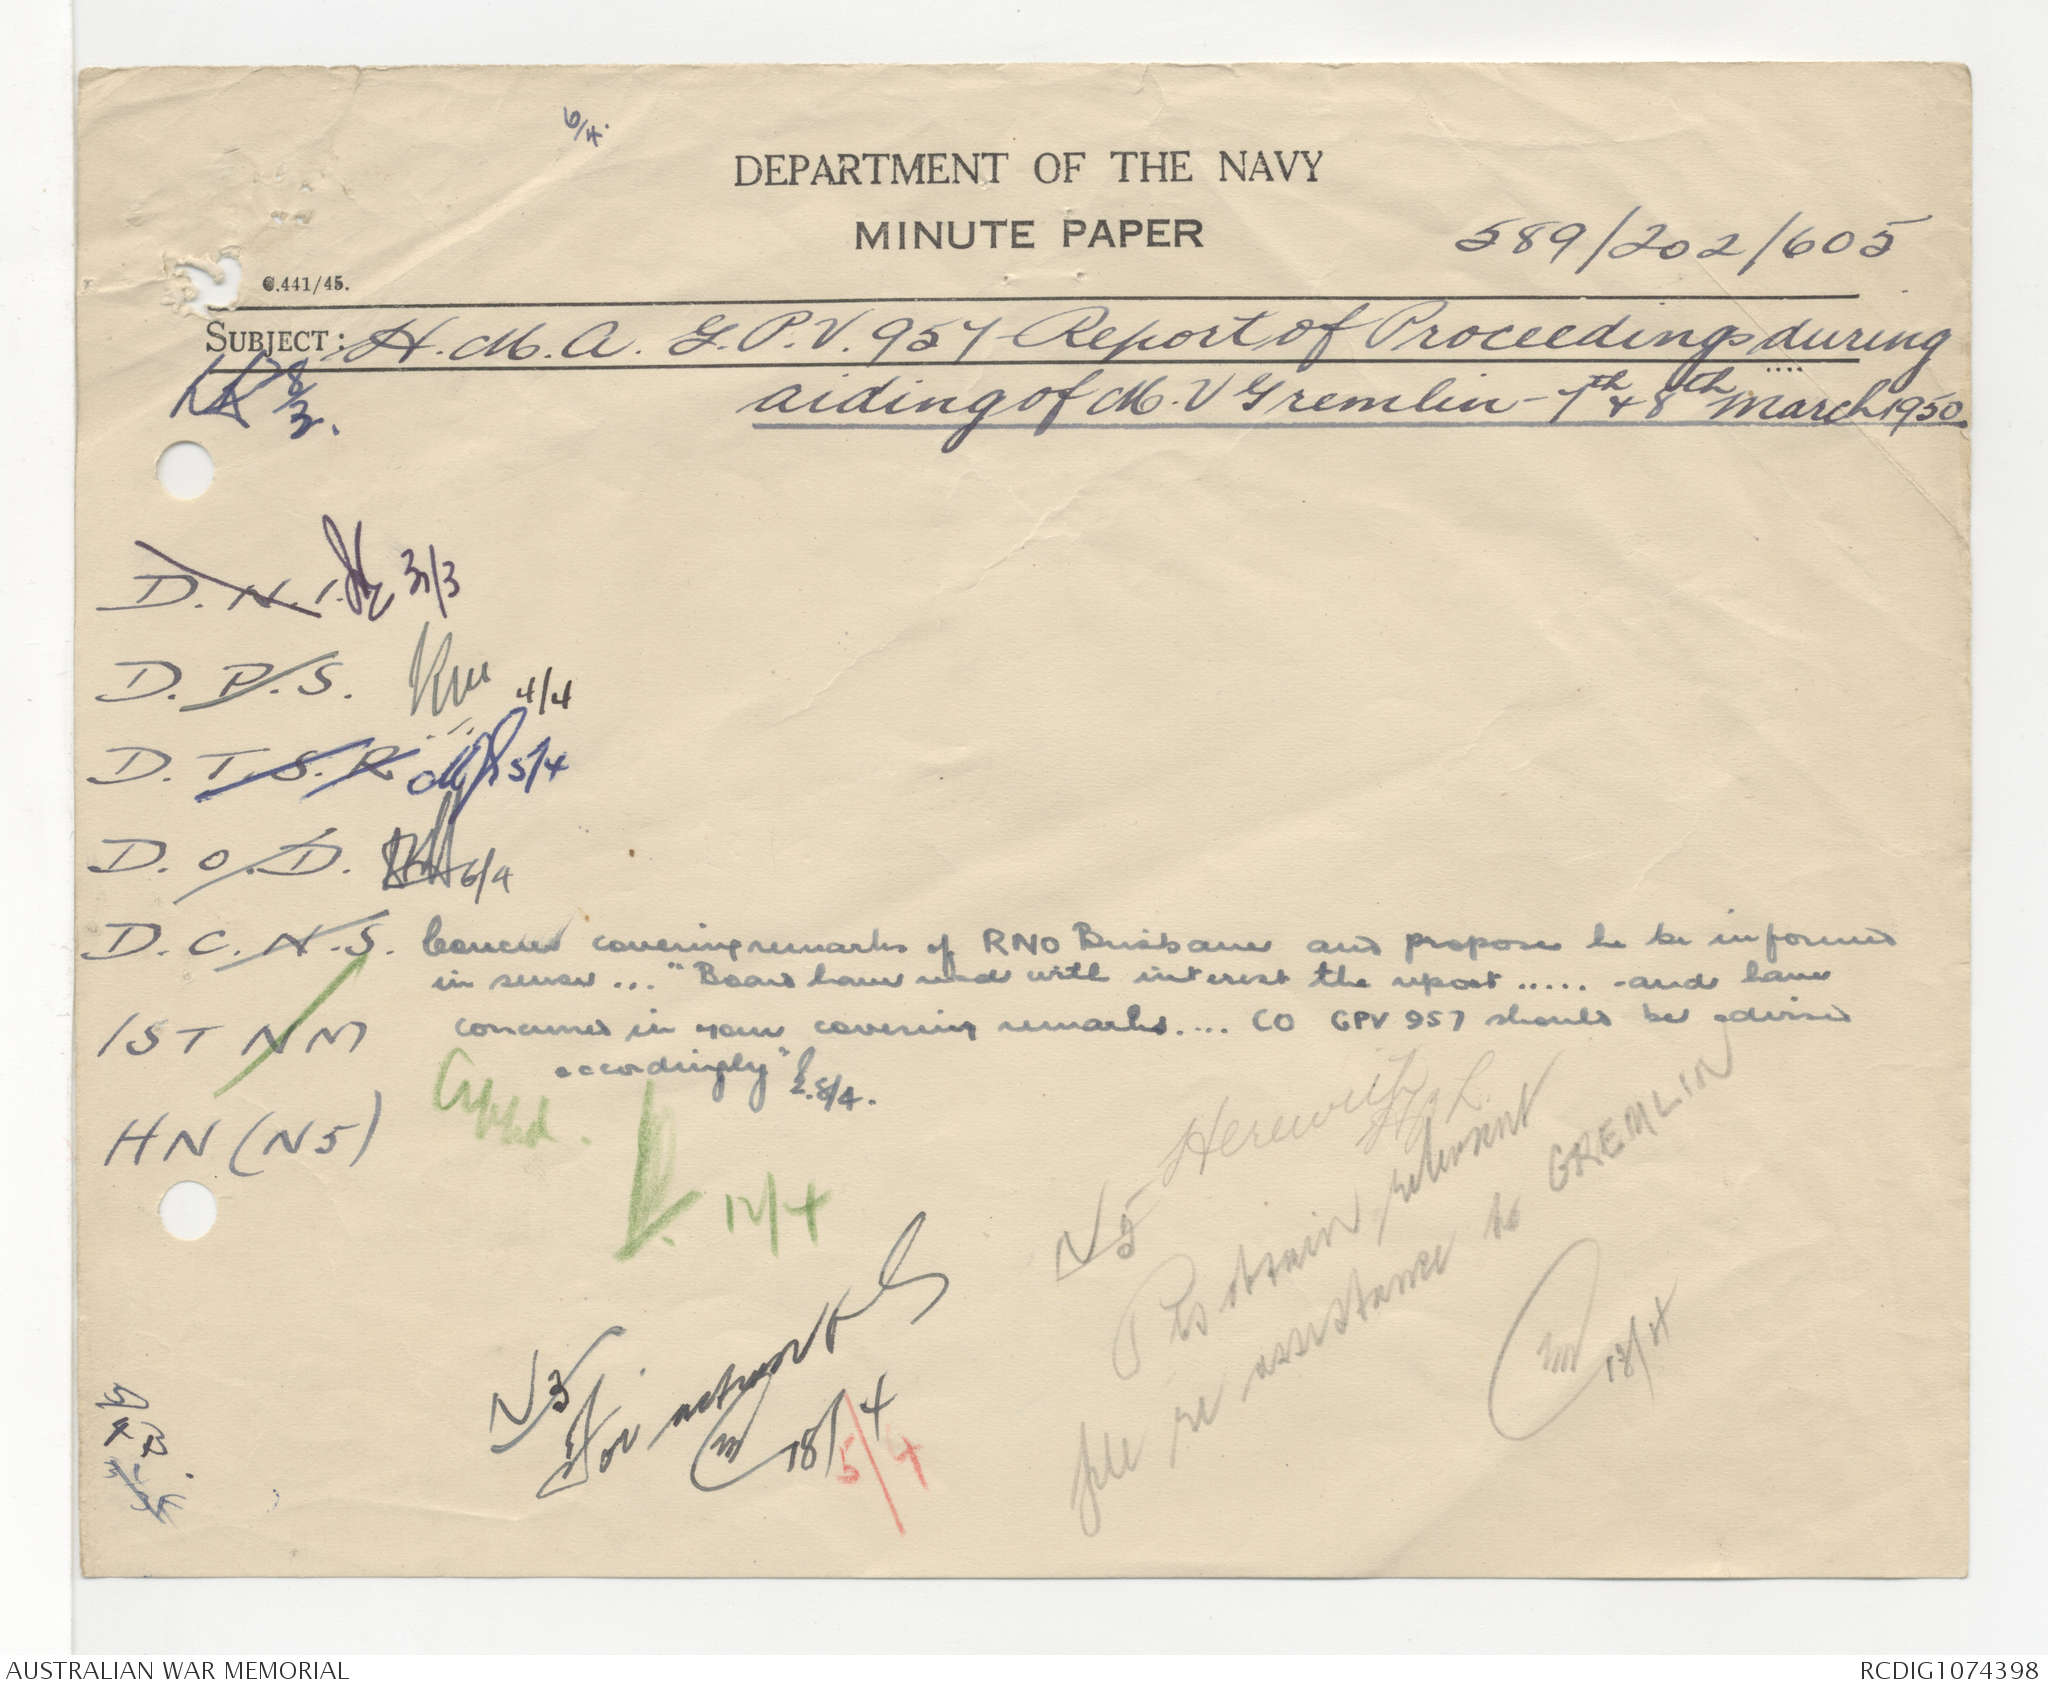 6/4.
DEPARTMENT OF THE NAVY
MINUTE PAPER
589/202/605
C.441/45.
SUBJECT: H.M.A. G.P.V. 957 - Report of Proceedings during
aiding of M.V Gremlin - 7th & 8th March 1950.
8/3.
D.N.I. 31/3
D.P.S. 4/4
D.T.S.R 5/4
D.O.D. 6/4
D.C.N.S. Concur covering remarks of RNO Brisbane and propose he be informed
in sense ... "Board have read with interest the report ..... and have
1ST NM concurred in your covering remarks.... CO GPV 957 should be advised
accordingly" 8/4.
Appd.
HN (N5)
12/4
N5 Herewith
Pls obtain relevant
file re assistance to GREMLIN
18/4
N5
For action
18/4
5/4
AUSTRALIAN WAR MEMORIAL
RCDIG1074398